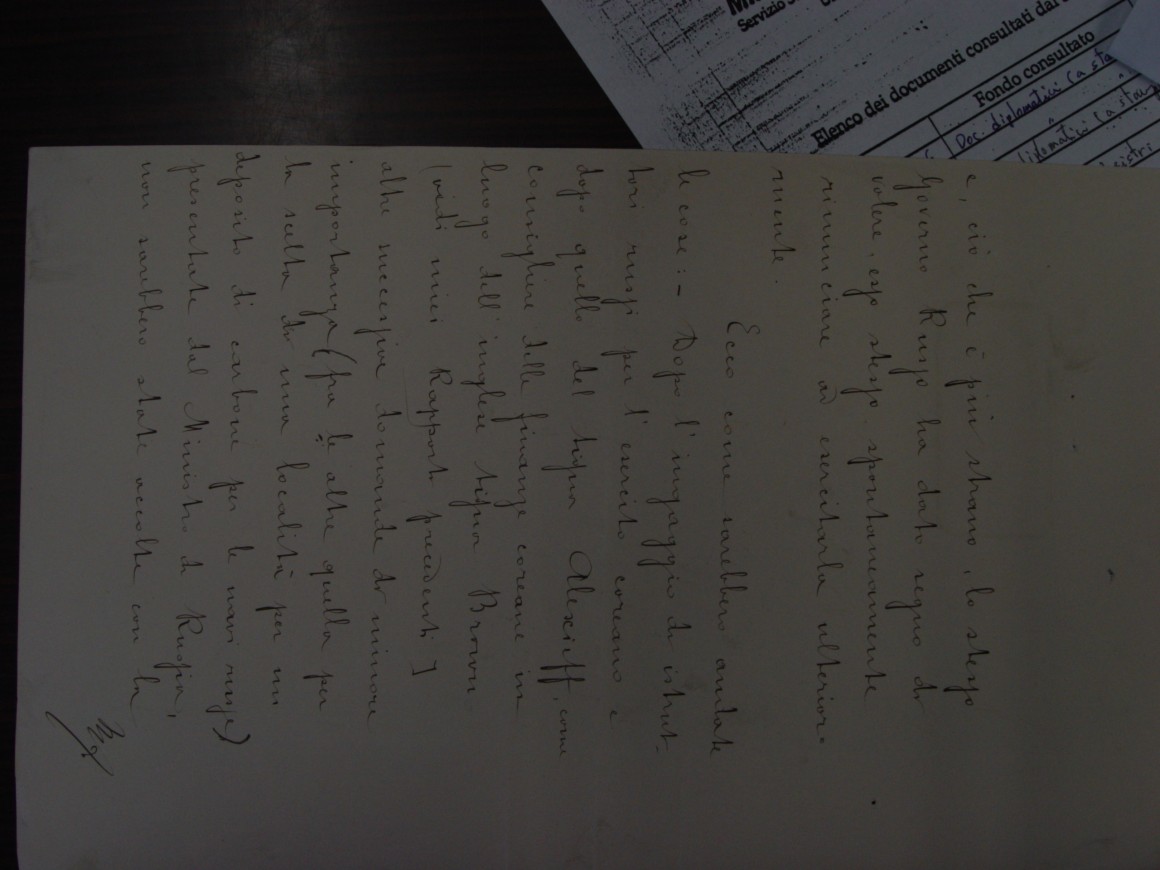 e, ciò che è più strano, lo stesso
Governo Russo ha dato segno di
volere, esso stesso spontaneamente
rinunciare ad esercitarla ulterior-
mente.
Ecco come sarebbero andate
le cose: - Dopo l'ingaggio di istrut-
tori russi per l'esercito coreano e
dopo quello del signor Alexieff, come
consigliere delle finanze coreane in
luogo dell'inglese signor Brown
(vedi miei Rapporti precedenti)
altre successive domande di minore
importanza (fra le altre quella per
la scelta di una località per un
deposito di carbone per le navi russe)
presentate dal Ministro di Russia,
non sarebbero state accolte con la
Servizio S
Elenco dei documenti consultati dal
Fondo consultato
Doc. diplomatici (a sta
diplomatici (a stam
gistri